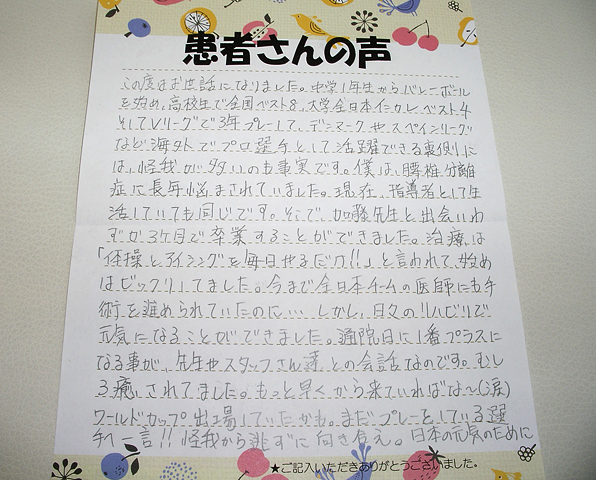 患者さんの声
この度はお世話になりました。中学1年生からバレーボール
を始め、高校生で全国ベスト8、大学全日本インカレベスト4
そしてVリーグで3年プレーして、デンマークやスペインリーグ
など海外でプロ選手として活躍できる裏側に
は、怪我が多いのも事実です。僕は、腰椎分離
症に長年悩まされていました。現在、指導者として生
活していても同じです。そこで、加藤先生と出会いわ
ずか3ケ月で卒業することができました。治療は
「体操とアイシングを毎日やるだけ!!」と言われて、始め
はビックリしてました。今まで全日本チームの医師にも手
術を進められていたのに… しかし、日々のリハビリで
元気になることができました。通院日に1番プラスに
なる事が、先生やスタッフさん達との会話なのです。むし
ろ癒されてました。もっと早くから来ていればな~(涙)
ワールドカップ出場していたかも。まだプレーをしている選
手へ一言!! 怪我から逃ずに向き合え。日本の元気のために
★ご記入いただきありがとうございました。